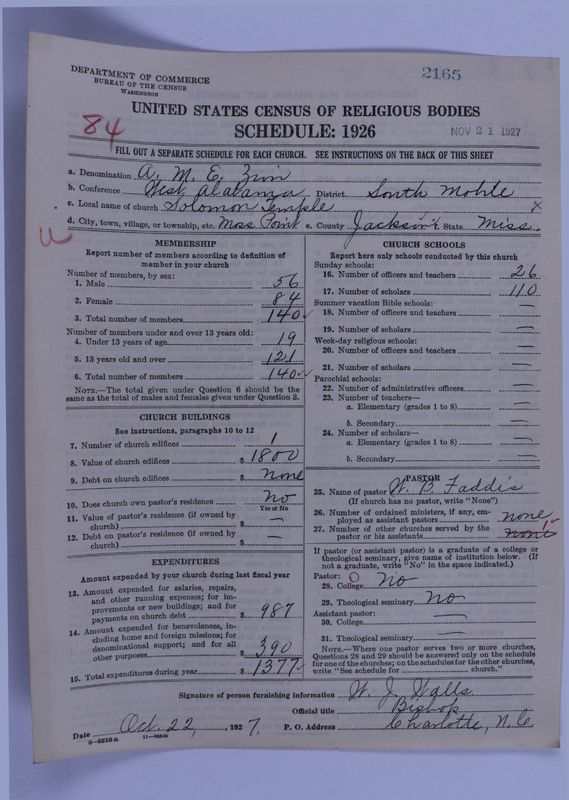 2165
DEPARTMENT OF COMMERCE
BUREAU OF THE CENSUS
WASHINGTON
UNITED STATES CENSUS OF RELIGIOUS BODIES
SCHEDULE: 1926
84
NOV 21 1927
FILL OUT A SEPARATE SCHEDULE FOR EACH CHURCH. SEE INSTRUCTIONS ON THE BACK OF THIS SHEET
a. Denomination A. M. E. Zion
b. Conference West Alabama District South Mobile
c. Local name of church Solomon Temple x
d. City, town, village, or township, etc. Moss Point e. County Jackson f. State Miss.
MEMBERSHIP
Report number of members according to definition of
member in your church
Number of members, by sex:
1. Male 56
2. Female 84
3. Total number of members 140
Number of members under and over 13 years old:
4. Under 13 years of age 19
5. 13 years old and over 121
6. Total number of members 140
NOTE.—The total given under Question 6 should be the
same as the total of males and females given under Question 3.
CHURCH BUILDINGS
See instructions, paragraphs 10 to 12
7. Number of church edifices 1
8. Value of church edifices $ 1800
9. Debt on church edifices $ none
10. Does church own pastor's residence No
Yes or No
11. Value of pastor's residence (if owned by
church) $ —
12. Debt on pastor's residence (if owned by
church) $ —
EXPENDITURES
Amount expended by your church during last fiscal year
13. Amount expended for salaries, repairs,
and other running expenses; for im-
provements or new buildings; and for
payments on church debt $ 987
14. Amount expended for benevolences, in-
cluding home and foreign missions; for
denominational support; and for all
other purposes $ 390
15. Total expenditures during year $ 1377
CHURCH SCHOOLS
Report here only schools conducted by this church
Sunday schools:
16. Number of officers and teachers 26
17. Number of scholars 110
Summer vacation Bible schools:
18. Number of officers and teachers —
19. Number of scholars —
Week-day religious schools:
20. Number of officers and teachers —
21. Number of scholars —
Parochial schools:
22. Number of administrative officers —
23. Number of teachers—
a. Elementary (grades 1 to 8) —
b. Secondary —
24. Number of scholars—
a. Elementary (grades 1 to 8) —
b. Secondary —
PASTOR
25. Name of pastor W. B. Faddis
(If church has no pastor, write "None")
26. Number of ordained ministers, if any, em-
ployed as assistant pastors none
27. Number of other churches served by the
pastor or his assistants none 1
If pastor (or assistant pastor) is a graduate of a college or
theological seminary, give name of institution below. (If
not a graduate, write "No" in the space indicated.)
Pastor:
28. College No
29. Theological seminary No
Assistant pastor:
30. College —
31. Theological seminary —
NOTE.—Where one pastor serves two or more churches,
Questions 28 and 29 should be answered only on the schedule
for one of the churches; on the schedules for the other churches,
write "See schedule for church."
Signature of person furnishing information W. J. Walls
Official title Bishop
Date Oct. 22, 1927. P. O. Address Charlotte, N. C.